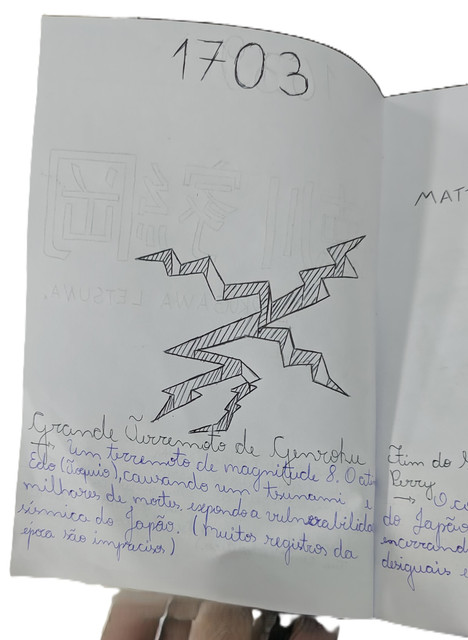 1703
Grande Terremoto de Genroku
→ Um terremoto de magnitude 8.0 ati
Edo (Tóquio), causando um tsunami e
milhares de mortes, expondo a vulnerabilida
sísmica do Japão. (Muitos registros da
época são imprecisos)
MAT
Fim do
Perry
→ O co
do Japão
encerrand
desiguais e